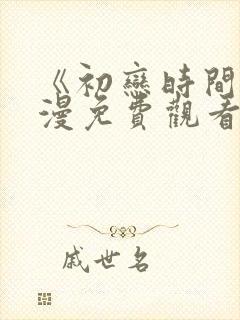 《初戀時間
漫免費觀看
戚世名